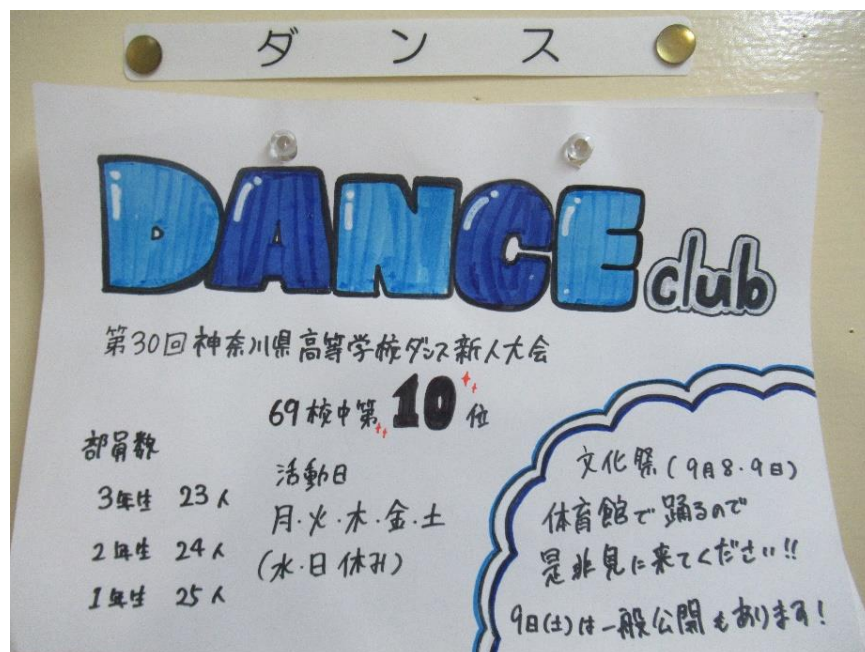 ダンス
DANCE club
第30回神奈川県高等学校ダンス新人大会
69校中第10位
部員数
3年生 23人
2年生 24人
1年生 25人
活動日
月・火・木・金・土
(水・日休み)
文化祭(9月8・9日)
体育館で踊るので
是非見に来てください!!
9日(土)は一般公開もあります!